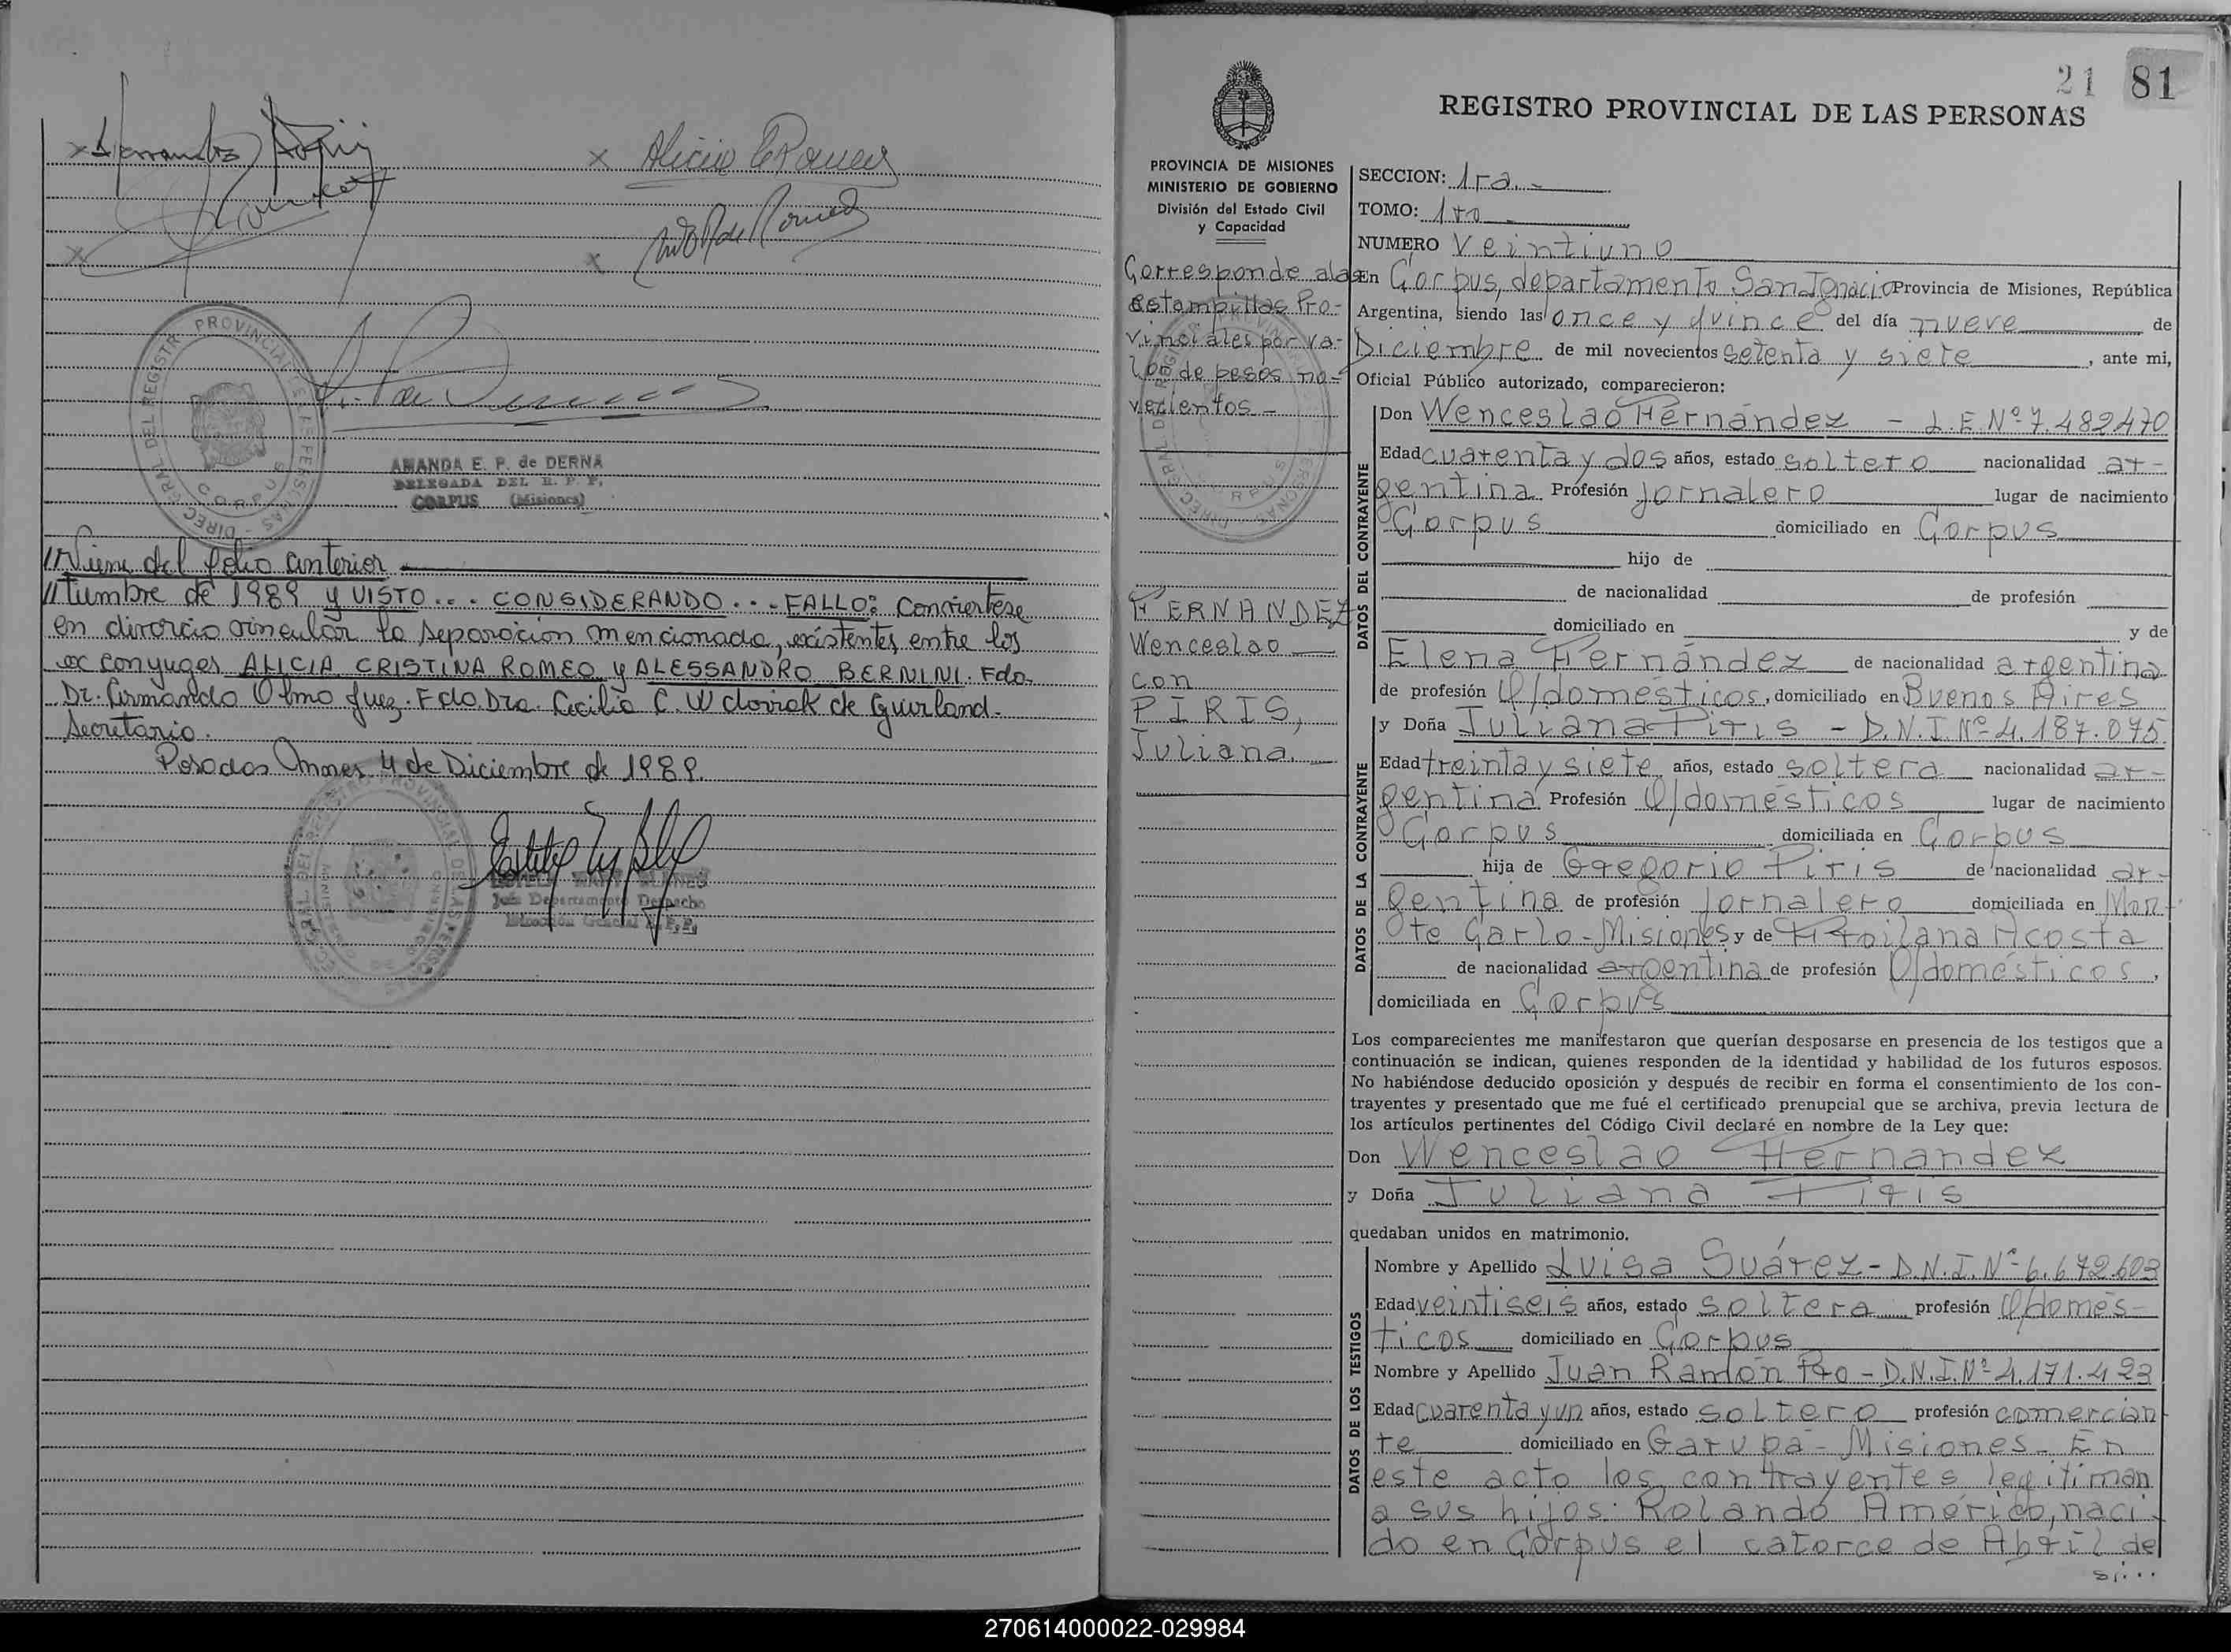 Alicia C Romeo
PROVINCIAL DE
AMANDA E. P. de DERNA
DELEGADA DEL R. P. P.
CORPUS (Misiones)
//Viene del folio anterior
//tumbre de 1989 y VISTO... CONSIDERANDO... FALLO: Conviertese
en divorcio vincular la separacion mencionada, existentes entre los
ex conyuges ALICIA CRISTINA ROMEO y ALESSANDRO BERNINI. Fdo.
Dr. Armando Olmo Juez. Fdo. Dra. Cecilia C. W de Guirland.
Secretario.
Posadas Mnes 4 de Diciembre de 1989.
Jefe Departamento Despacho
Dirección General R.P.P.
21 81
REGISTRO PROVINCIAL DE LAS PERSONAS
PROVINCIA DE MISIONES
MINISTERIO DE GOBIERNO
División del Estado Civil
y Capacidad
Corresponde a las
estampillas Pro-
vinciales por va-
lor de pesos no-
vecientos-
HERNANDEZ
Wenceslao
con
PIRIS,
Juliana.
SECCION: 1ra.-
TOMO: 1ro-
NUMERO Veintiuno
En Corpus, departamento San Ignacio Provincia de Misiones, República
Argentina, siendo las once y quince del día nueve de
Diciembre de mil novecientos setenta y siete, ante mi,
Oficial Público autorizado, comparecieron:
DATOS DEL CONTRAYENTE
Don Wenceslao Hernández - L.E. Nº 7.482470
Edad cuarenta y dos años, estado soltero nacionalidad ar-
gentina Profesión jornalero lugar de nacimiento
Corpus domiciliado en Corpus
hijo de
de nacionalidad de profesión
domiciliado en y de
Elena Hernández de nacionalidad argentina
de profesión Q/domésticos, domiciliado en Buenos Aires
DATOS DE LA CONTRAYENTE
y Doña Juliana Piris - D.N.I. Nº 4.187.075
Edad treinta y siete años, estado soltera nacionalidad ar-
gentina Profesión Q/domésticos lugar de nacimiento
Corpus domiciliada en Corpus
hija de Gregorio Piris de nacionalidad ar-
gentina de profesión jornalero domiciliada en Mon-
te Carlo-Misiones y de Acosta
de nacionalidad argentina de profesión Q/domésticos,
domiciliada en Corpus
Los comparecientes me manifestaron que querían desposarse en presencia de los testigos que a
continuación se indican, quienes responden de la identidad y habilidad de los futuros esposos.
No habiéndose deducido oposición y después de recibir en forma el consentimiento de los con-
trayentes y presentado que me fué el certificado prenupcial que se archiva, previa lectura de
los artículos pertinentes del Código Civil declaré en nombre de la Ley que:
Don Wenceslao Hernandez
y Doña Juliana Piris
quedaban unidos en matrimonio.
DATOS DE LOS TESTIGOS
Nombre y Apellido Luisa Suárez - D.N.I. Nº 6.672.603
Edad veintiseis años, estado soltera profesión Q/domés-
ticos domiciliado en Corpus
Nombre y Apellido Juan Ramón Fro - D.N.I. Nº 4.171.493
Edad cuarenta y un años, estado soltero profesión comercian-
te domiciliado en Garupá - Misiones - En
este acto los contrayentes legitiman
a sus hijos: Rolando Américo, naci-
do en Corpus el catorce de Abril de
si...
270614000022-029984